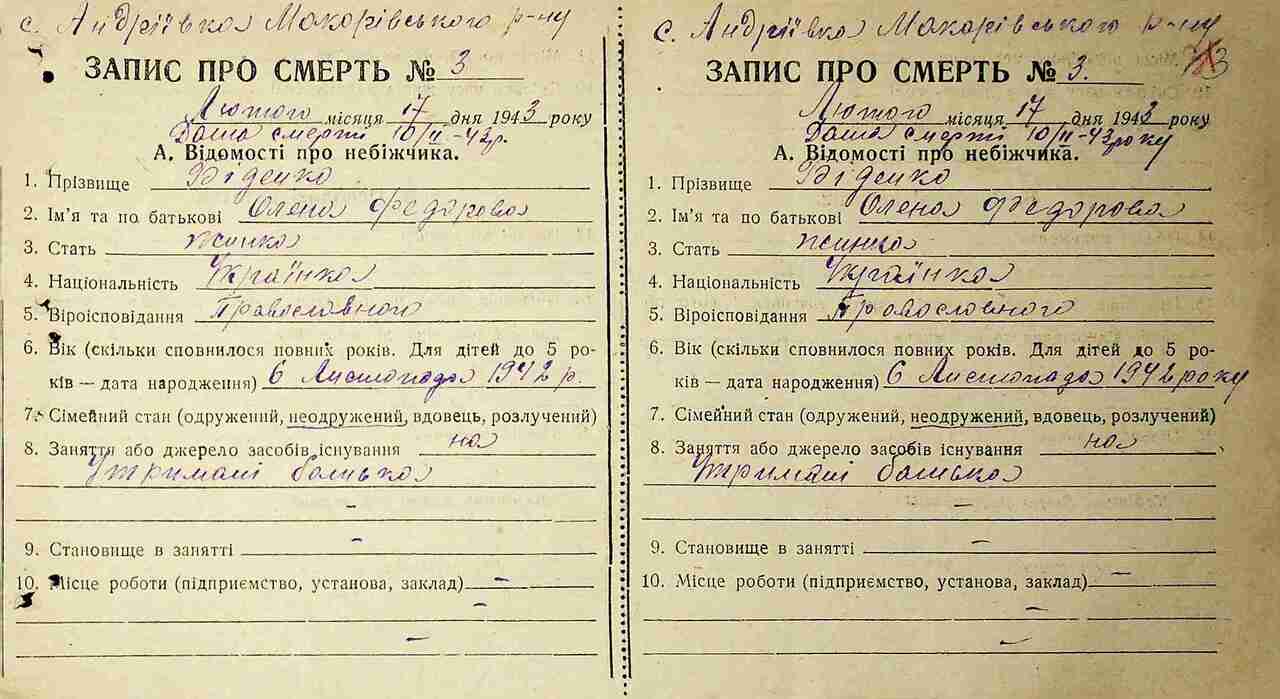 с. Андріївка Макарівського р-ну
ЗАПИС ПРО СМЕРТЬ № 3
Лютого місяця 17 дня 1943 року
Дата смерті 10/II-43р.
А. Відомості про небіжчика.
1. Прізвище Віденко
2. Ім'я та по батькові Олена Федорова
3. Стать жинка
4. Національність Українка
5. Віроісповідання Православного
6. Вік (скільки сповнилося повних років. Для дітей до 5 ро-
ків — дата народження) 6 Листопада 1942 р.
7. Сімейний стан (одружений, неодружений, вдовець, розлучений)
8. Заняття або джерело засобів існування на
Утримані батька
9. Становище в занятті —
10. Місце роботи (підприємство, установа, заклад) —
с. Андріївка Макарівського р-ну
ЗАПИС ПРО СМЕРТЬ № 3.
Лютого місяця 17 дня 1943 року
Дата смерті 10/II-43 року
А. Відомості про небіжчика.
1. Прізвище Віденко
2. Ім'я та по батькові Олена Федорова
3. Стать жинка
4. Національність Українка
5. Віроісповідання Православного
6. Вік (скільки сповнилося повних років. Для дітей до 5 ро-
ків — дата народження) 6 Листопада 1942 року
7. Сімейний стан (одружений, неодружений, вдовець, розлучений)
8. Заняття або джерело засобів існування на
Утримані батька
9. Становище в занятті —
10. Місце роботи (підприємство, установа, заклад) —